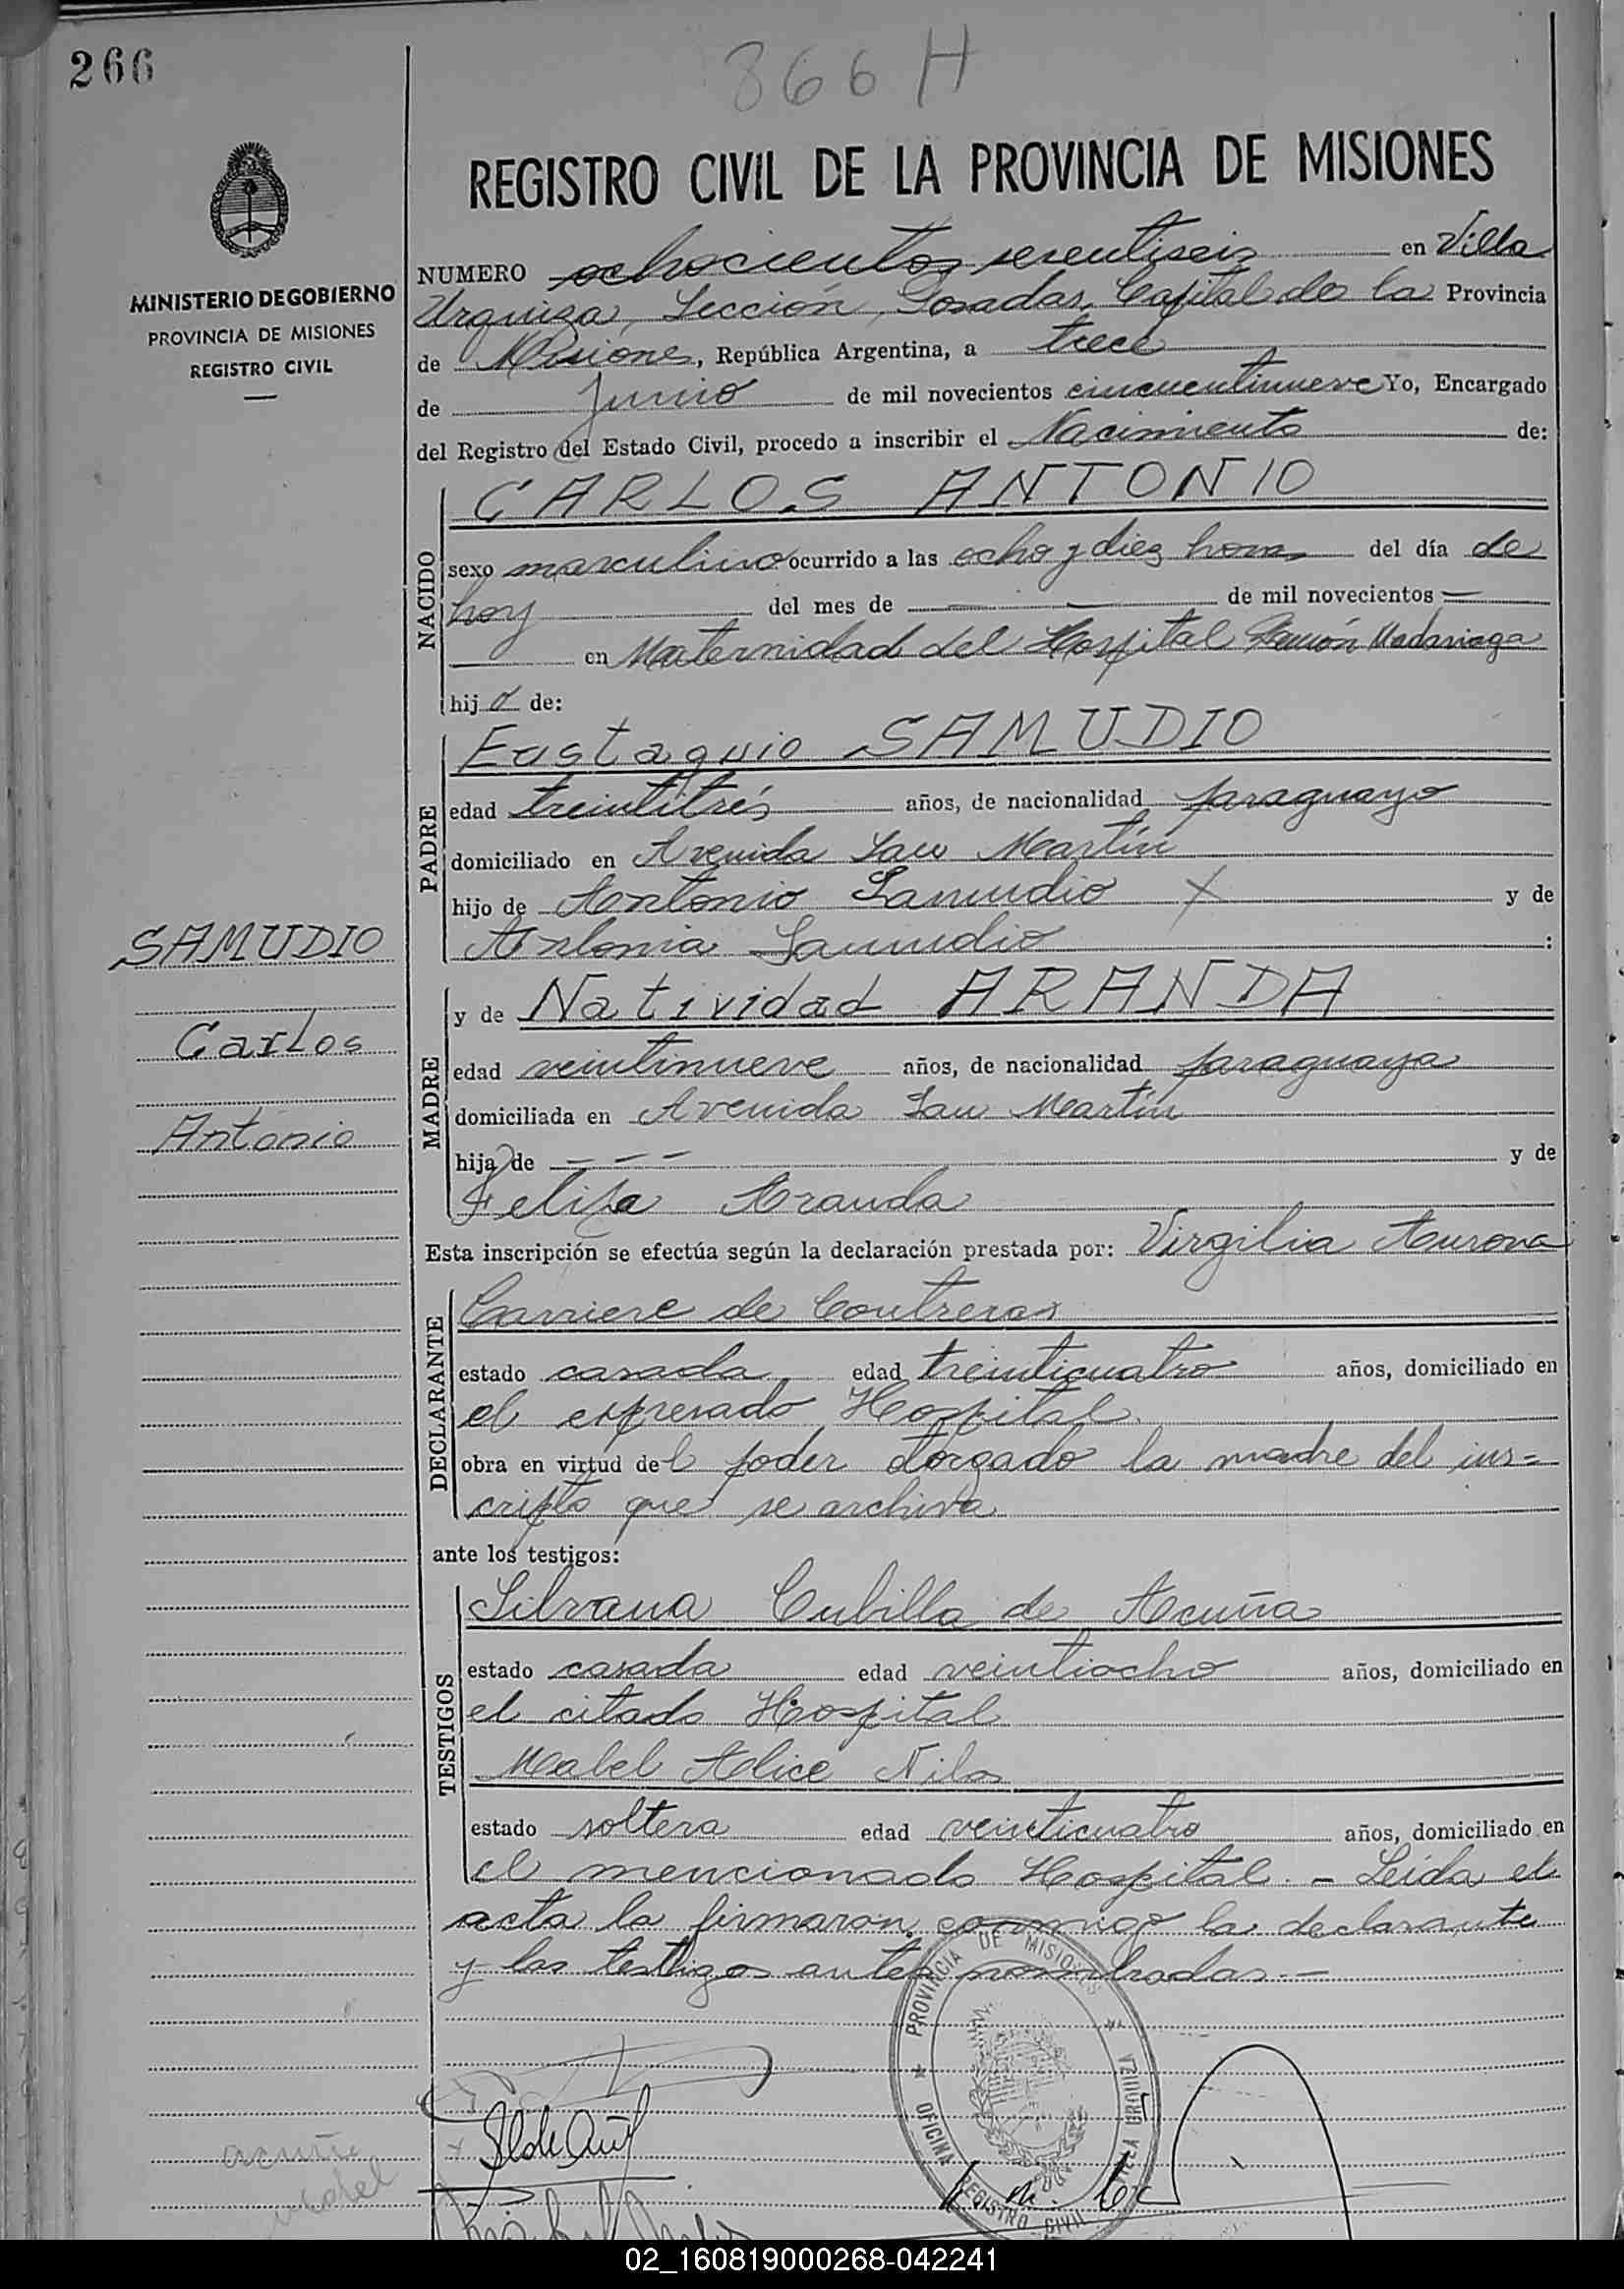 266
866 H
REGISTRO CIVIL DE LA PROVINCIA DE MISIONES
MINISTERIO DE GOBIERNO
PROVINCIA DE MISIONES
REGISTRO CIVIL
NUMERO ochocientos sesentiseis en Villa
Urquiza, Sección, Posadas, Capital de la Provincia
de Misiones, República Argentina, a trece
de Junio de mil novecientos cincuentinueve Yo, Encargado
del Registro del Estado Civil, procedo a inscribir el Nacimiento de:
NACIDO
CARLOS ANTONIO
sexo masculino ocurrido a las ocho y diez horas del día de
hoy del mes de — — de mil novecientos —
en Maternidad del Hospital Ramón Madariaga
hijo de:
PADRE
Eustaquio SAMUDIO
edad treintitrés años, de nacionalidad paraguayo
domiciliado en Avenida San Martín
hijo de Antonio Samudio X y de
Antonia Samudio :
SAMUDIO
Carlos
Antonio
MADRE
y de Natividad ARANDA
edad veintinueve años, de nacionalidad paraguaya
domiciliada en Avenida San Martín
hija de - - - y de
Felisa Aranda
Esta inscripción se efectúa según la declaración prestada por: Virgilia Aurora
DECLARANTE
Carriere de Contreras
estado casada edad treinticuatro años, domiciliado en
el expresado Hospital.
obra en virtud del poder otorgado la madre del ins=
cripto que se archiva
ante los testigos:
TESTIGOS
Silvana Cubilla de Acuña
estado casada edad veintiocho años, domiciliado en
el citado Hospital
Mabel Alice Nilos
estado soltera edad veinticuatro años, domiciliado en
el mencionado Hospital. - Leída el
acta la firmaron conmigo la declarante
y las testigos antes nombradas. -
PROVINCIA DE MISIONES
OFICINA REGISTRO CIVIL VILLA URQUIZA
acuña
mabel
02_160819000268-042241